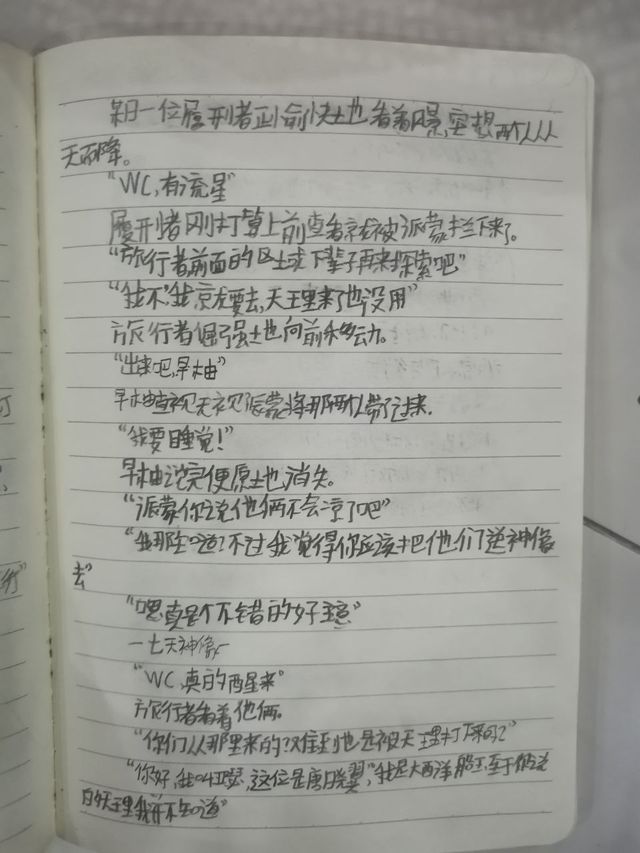 一位履刑者正愉快土也看着风景,突想两个人从
天而降。
"WC,有流星"
履刑者刚打算上前查看就被派蒙拦下来了。
"旅行者前面的区土或下辈子再来探索吧"
"我不,我京尤要去,天王里来了也没用"
旅行者倔强土也向前移动。
"出来吧,早柚"
早柚直视无视派蒙将那两个人带了过来.
"我要睡觉!"
早柚说完便原土也消失。
"派蒙你说他俩不会凉了吧"
"我那知道?不过我觉得你应该把他们送神像
去"
"嗯真是个不错的好主意"
一七天神像一
"WC,真的酉星来"
旅行者看着他俩。
"你们从那里来的?难到也是被天理打下来的?"
"你好,我叫亚瑟,这位是唐晓翼","我是大西洋船王,至于你说
的天王里我并不知道"